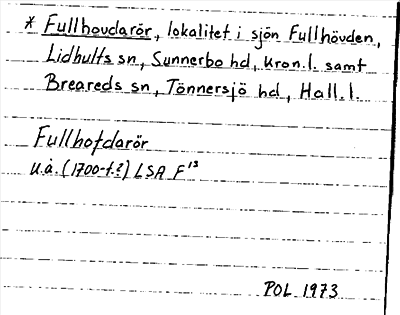 * Fullhovdarör, lokalitet i sjön Fullhövden,
Lidhults sn, Sunnerbo hd, Kron.l. samt
Breareds sn, Tönnersjö hd, Hall.l.
Fullhofdarör
u.å. (1700-t.?) LSA F¹³
POL 1973